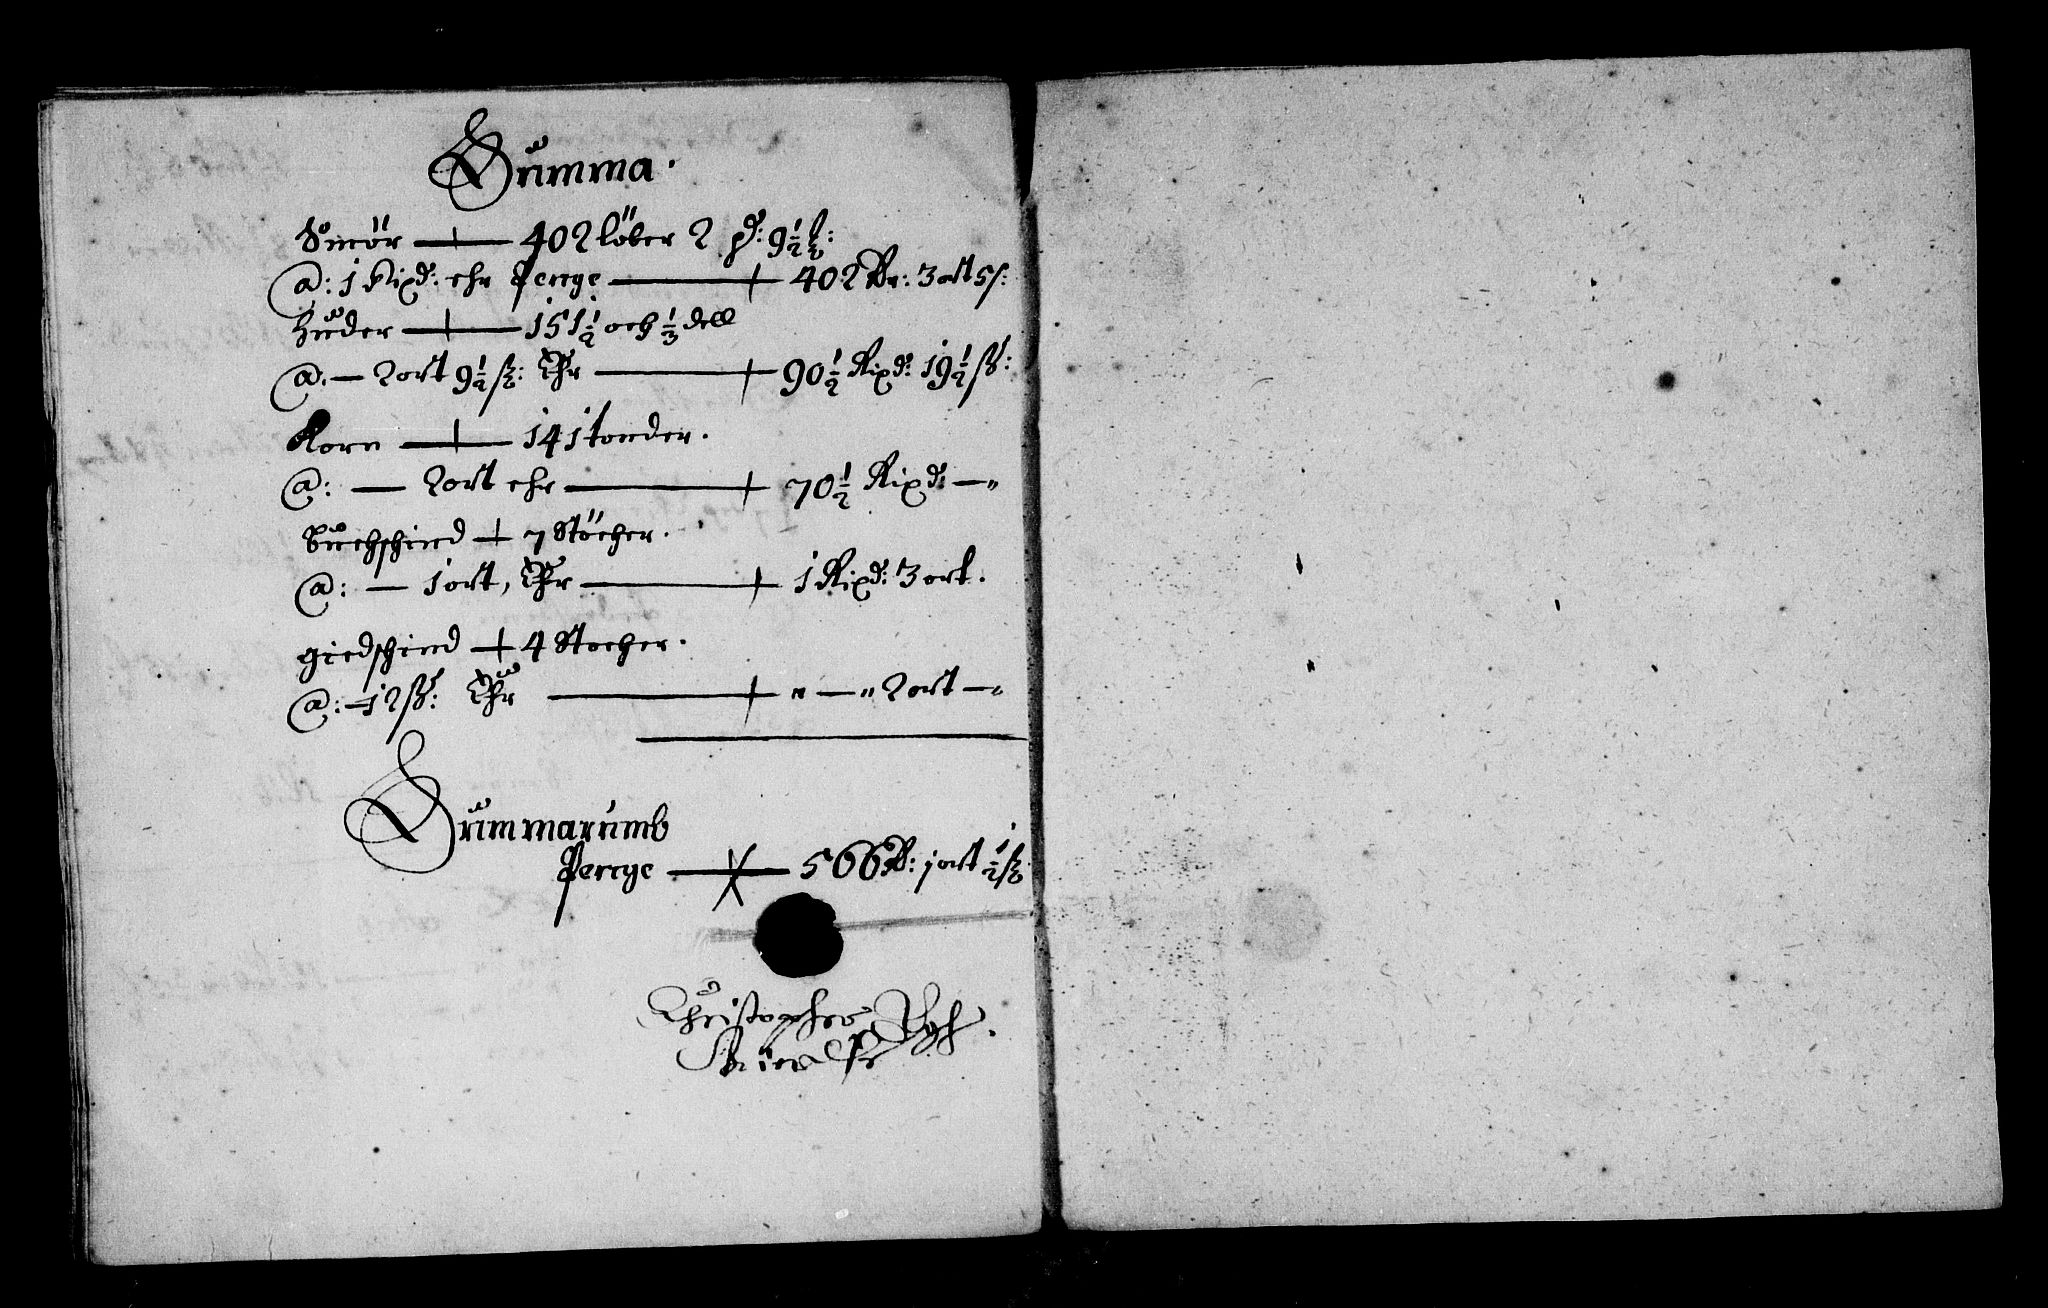 Summa.
Smör — 402 löber 2 pd: 9½ ℔:
@: 1 Rixd: ehr Penge — 402 Rr: 3 ort 5 s:
Huder — 151½ och ⅓ dell
@. — 2 ort 9½ ß: Ehr — 90½ Rixd: 19½ ß:
Korn — 141 tonder.
@: — 2 ort ehr — 70½ Rixd: — "
Buchschind — 7 Stöcher.
@: — 1 ort, Ehr — 1 Rixd: 3 ort.
giedschind — 4 Stocher.
@: — 12 ß: Ehr — " — " 2 ort — "
Summarumb
Penge — 566 R: 1 ort ½ ß
Christopher